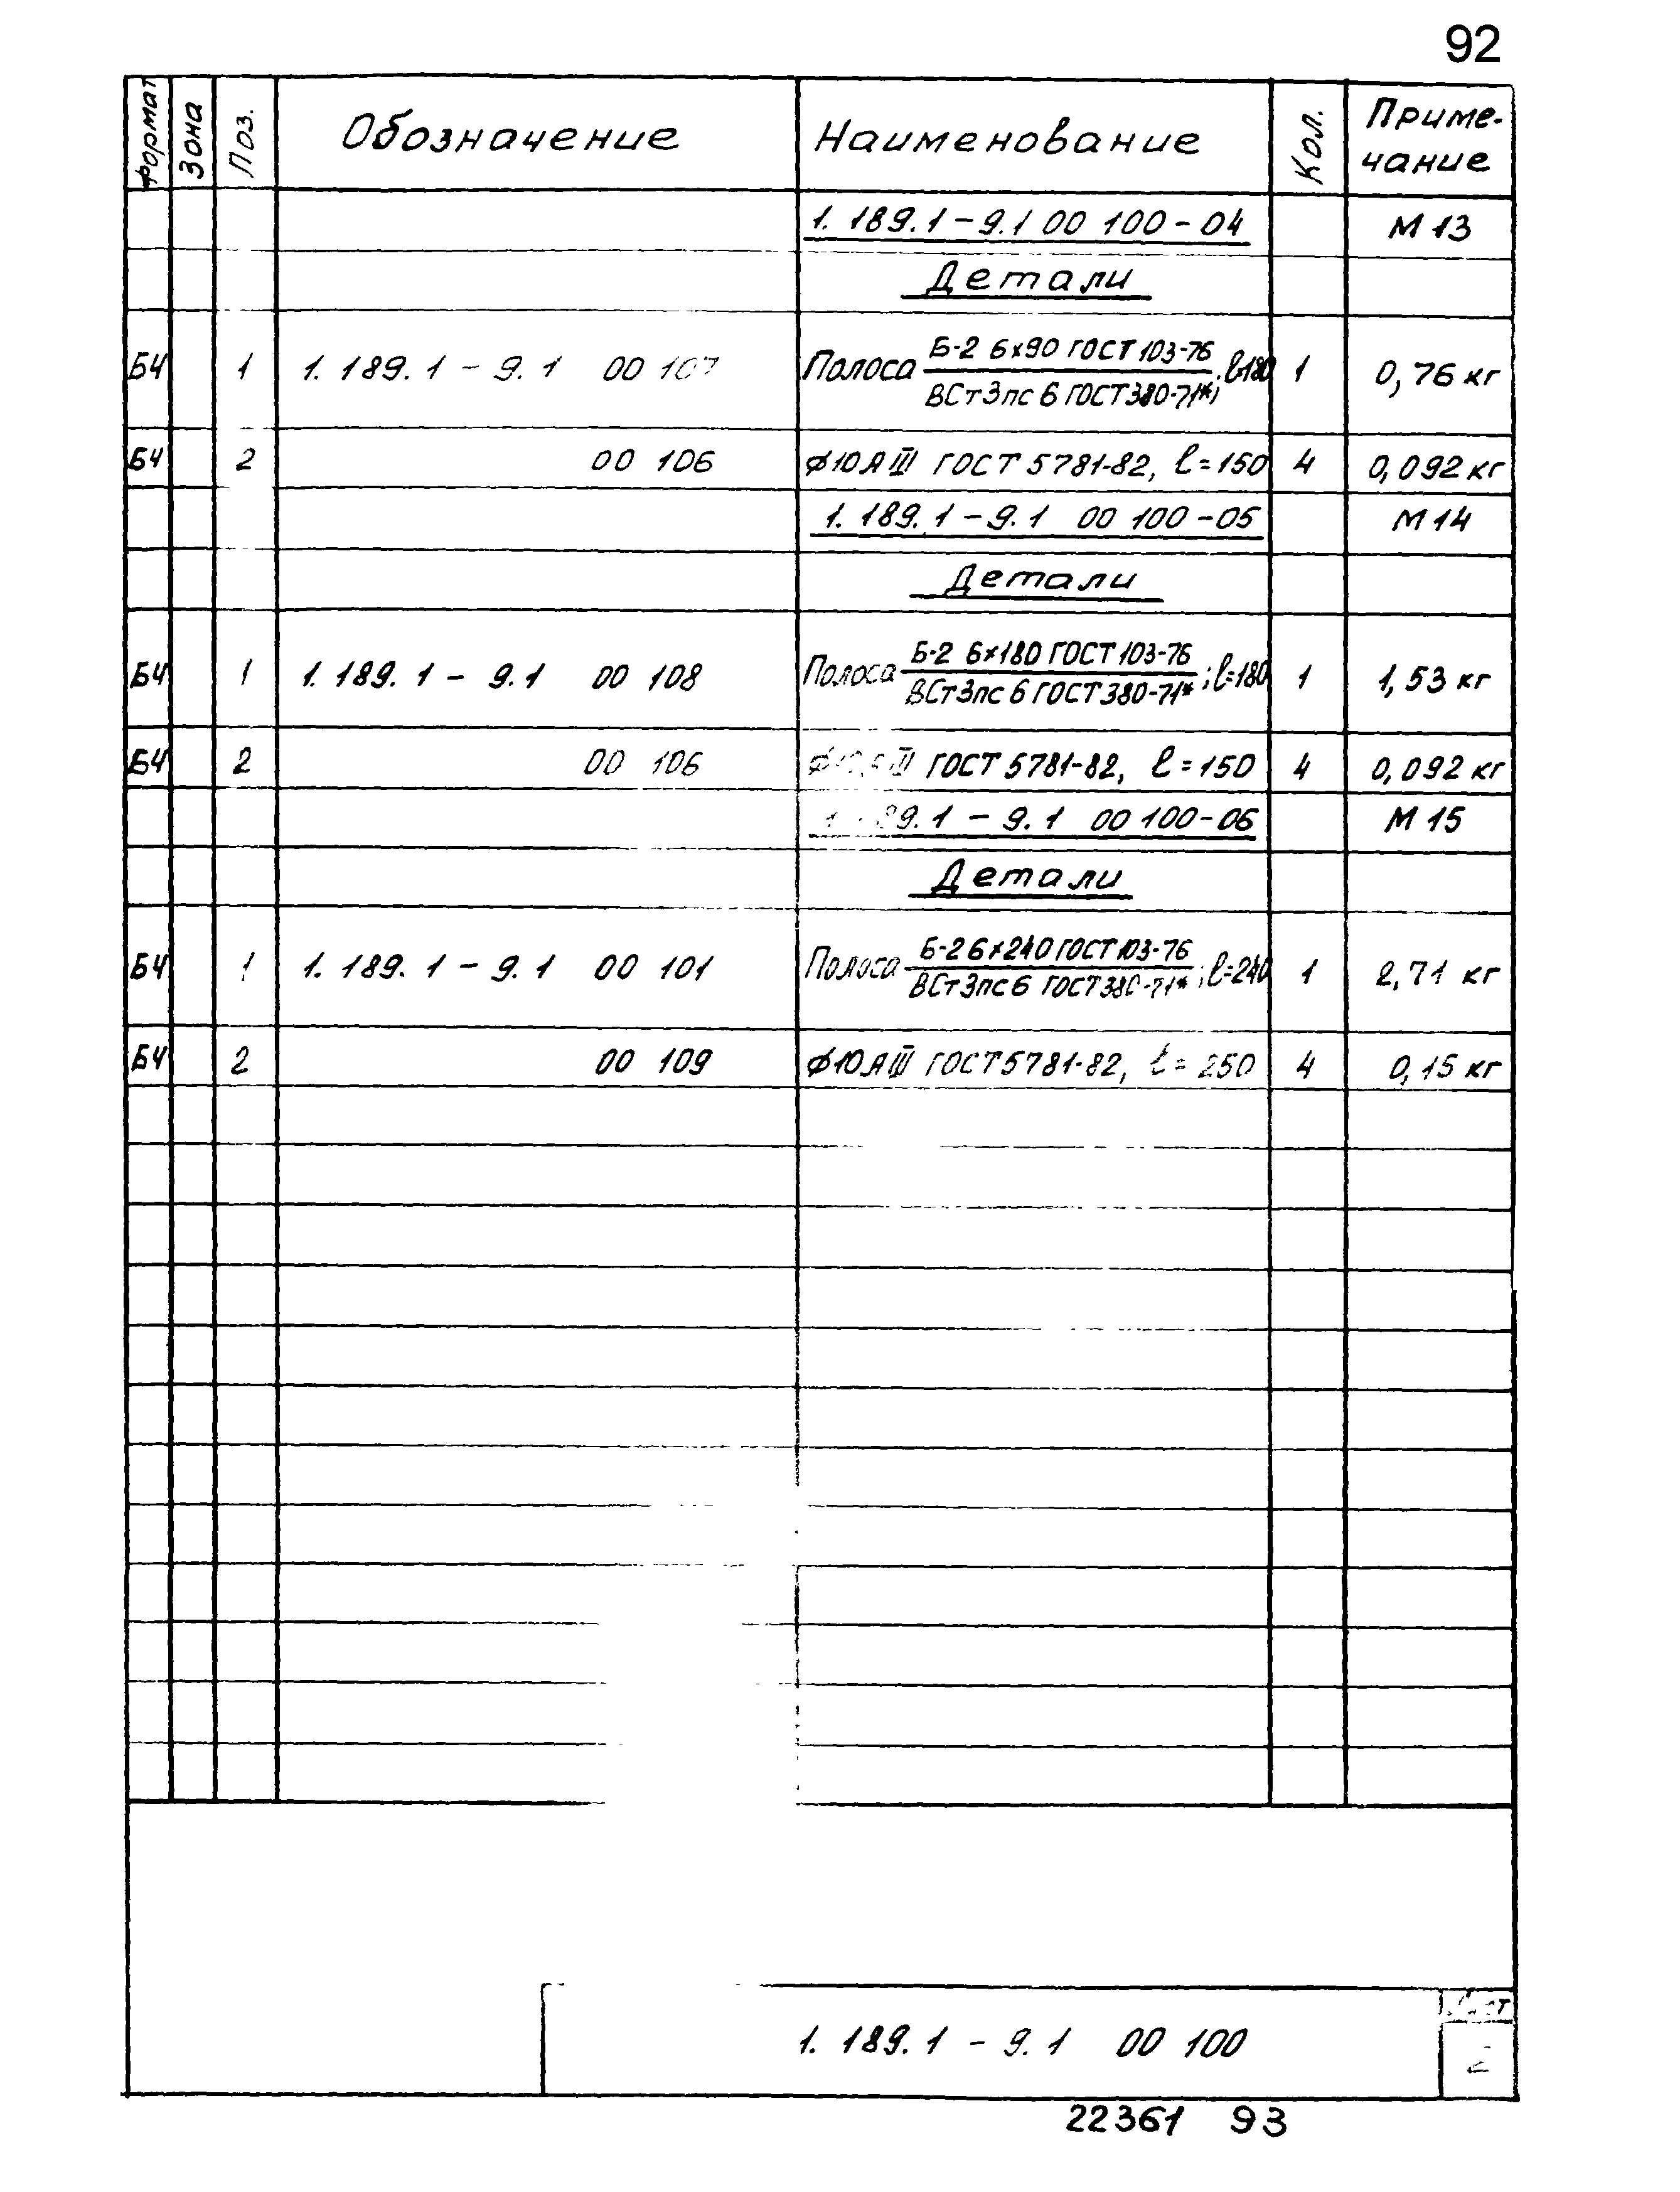 92
Формат Зона Поз. Обозначение Наименование Кол. Приме-
чание
1. 189.1 - 9.1 00 100 - 04 М 13
Детали
БЧ 1 1. 189. 1 - 9. 1 00 107 Полоса Б-2 6х90 ГОСТ 103-76 / ВСт3пс6 ГОСТ 380-71*; l=180 1 0,76 кг
БЧ 2 00 106 ф10АIII ГОСТ 5781-82, l=150 4 0,092 кг
1. 189. 1 - 9. 1 00 100 - 05 М 14
Детали
БЧ 1 1. 189. 1 - 9. 1 00 108 Полоса Б-2 6х180 ГОСТ 103-76 / ВСт3пс6 ГОСТ 380-71*; l=180 1 1,53 кг
БЧ 2 00 106 ф10АIII ГОСТ 5781-82, l=150 4 0,092 кг
1. 189. 1 - 9. 1 00 100-06 М 15
Детали
БЧ 1 1. 189. 1 - 9. 1 00 101 Полоса Б-2 6х240 ГОСТ 103-76 / ВСт3пс6 ГОСТ 380-71*; l=240 1 2,71 кг
БЧ 2 00 109 ф10АIII ГОСТ 5781-82, l=250 4 0,15 кг
Лист
1. 189. 1 - 9. 1 00 100 2
22361 93